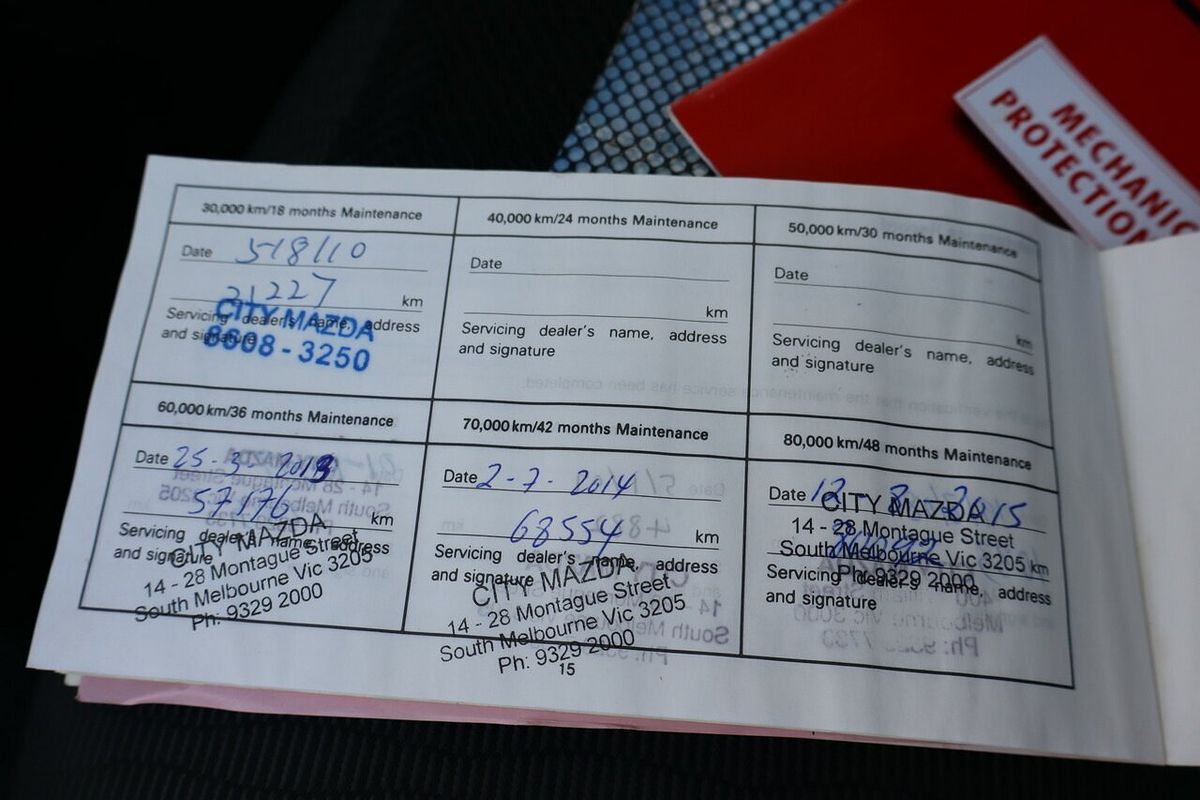 MECHANIC
PROTECTION
30,000 km/18 months Maintenance
Date 5/8/10
21227 km
Servicing dealer's name, address
and signature
CITY MAZDA
8608 - 3250
40,000 km/24 months Maintenance
Date
km
Servicing dealer's name, address
and signature
50,000 km/30 months Maintenance
Date
km
Servicing dealer's name, address
and signature
60,000 km/36 months Maintenance
Date 25-3-2013
57176 km
Servicing dealer's name, address
and signature
CITY MAZDA
14 - 28 Montague Street
South Melbourne Vic 3205
Ph: 9329 2000
70,000 km/42 months Maintenance
Date 2-7-2014
68554 km
Servicing dealer's name, address
and signature
CITY MAZDA
14 - 28 Montague Street
South Melbourne Vic 3205
Ph: 9329 2000
80,000 km/48 months Maintenance
Date
CITY MAZDA
14 - 28 Montague Street
South Melbourne Vic 3205 km
Ph: 9329 2000
Servicing dealer's name, address
and signature
15